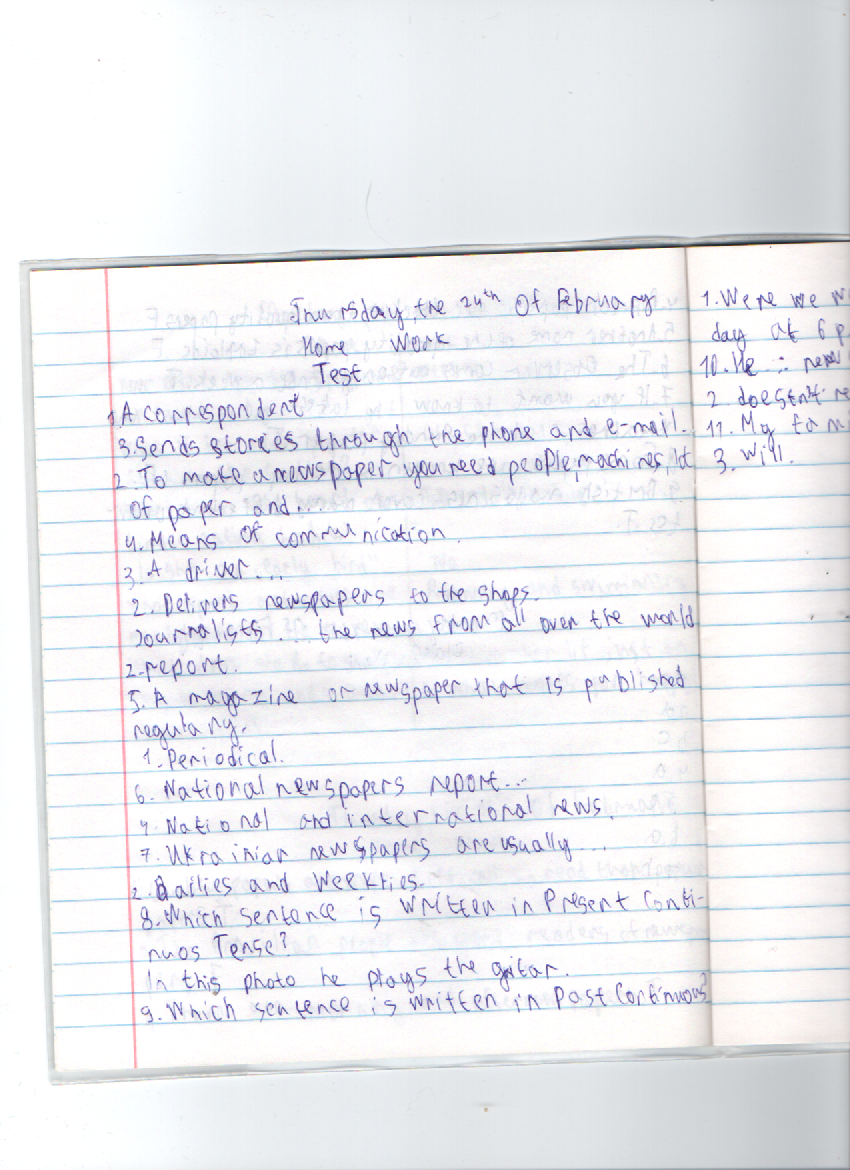 Thursday, the 24th Of February
Home Work
Test
1.A correspondent
3.Sends stories through the phone and e-mail.
2.To make a newspaper you need people, machines, lot
of paper and...
4. Means of communication.
3. A driver...
2. Delivers newspapers to the shops.
Journalists ... the news from all over the world
2.report.
5. A magazine or newspaper that is published
regulary.
1. Periodical.
6. National newspapers report...
4. National and international news.
7. Ukrainian newspapers are usually...
2. Dailies and Weeklies.
8.Which sentence is written in Present Conti-
nuos Tense?
In this photo he plays the gitar.
9. Which sentence is written in Past Continuous?
1. Were we
day at 6 p
10. He ...
2 doesn't re
11. My fami
3. Will.